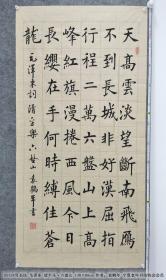 天高雲淡望斷南飛鴈
不到長城非好漢屈指
行程二萬六盤山上高
峰紅旗漫捲西風今日
長纓在手何時縛住蒼
龍
毛澤東詞清平樂六盤山